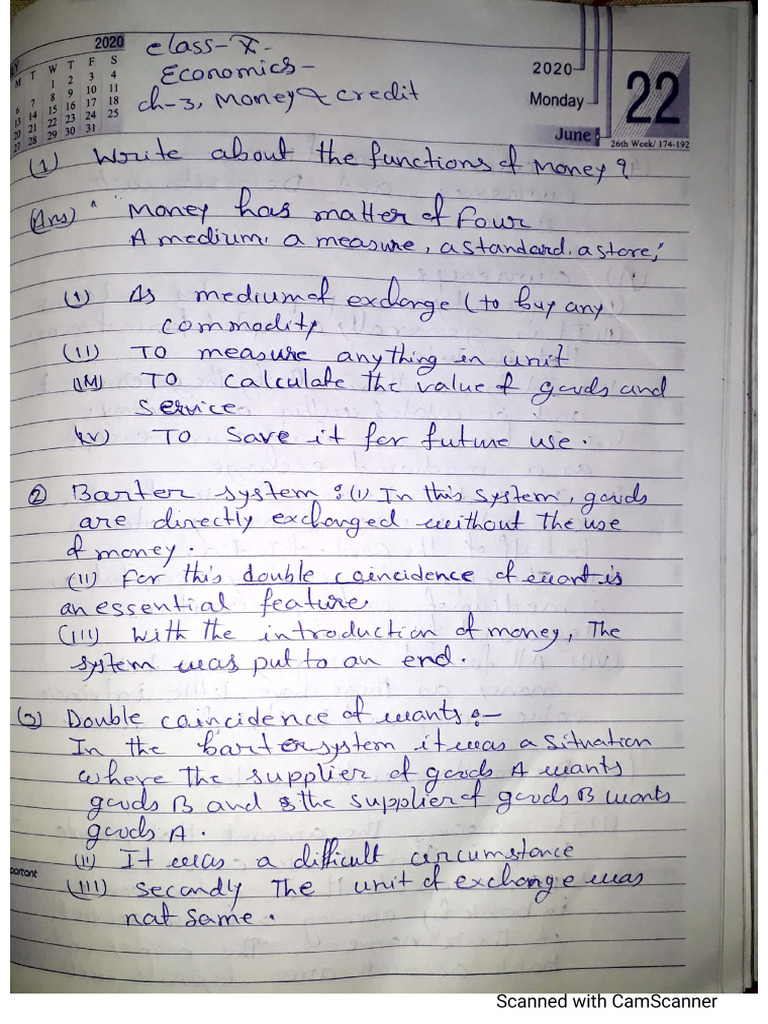 2020
Y
M T W T F S
1 2 3 4
6 7 8 9 10 11
13 14 15 16 17 18
20 21 22 23 24 25
27 28 29 30 31
class-X-
Economics-
ch-3, Money & credit
2020
Monday
June
22
26th Week/ 174-192
(1) Write about the functions of Money?
(Ans) " Money has matter of four
A medium, a measure, a standard. a store,"
(1) As medium of exchange (to buy any
commodity
(II) To measure anything in unit
(III) To calculate the value of goods and
service
(IV) To save it for future use.
② Barter system :(1) In this system, goods
are directly exchanged without the use
of money.
(II) for this double coincidence of want is
an essential feature
(III) with the introduction of money, The
system was put to an end.
(3) Double coincidence of wants :-
In the barter system it was a situation
where the supplier of goods A wants
goods B and the supplier of goods B wants
goods A.
(II) It was a difficult circumstance
(III) secondly The unit of exchange was
not same.
portant
Scanned with CamScanner